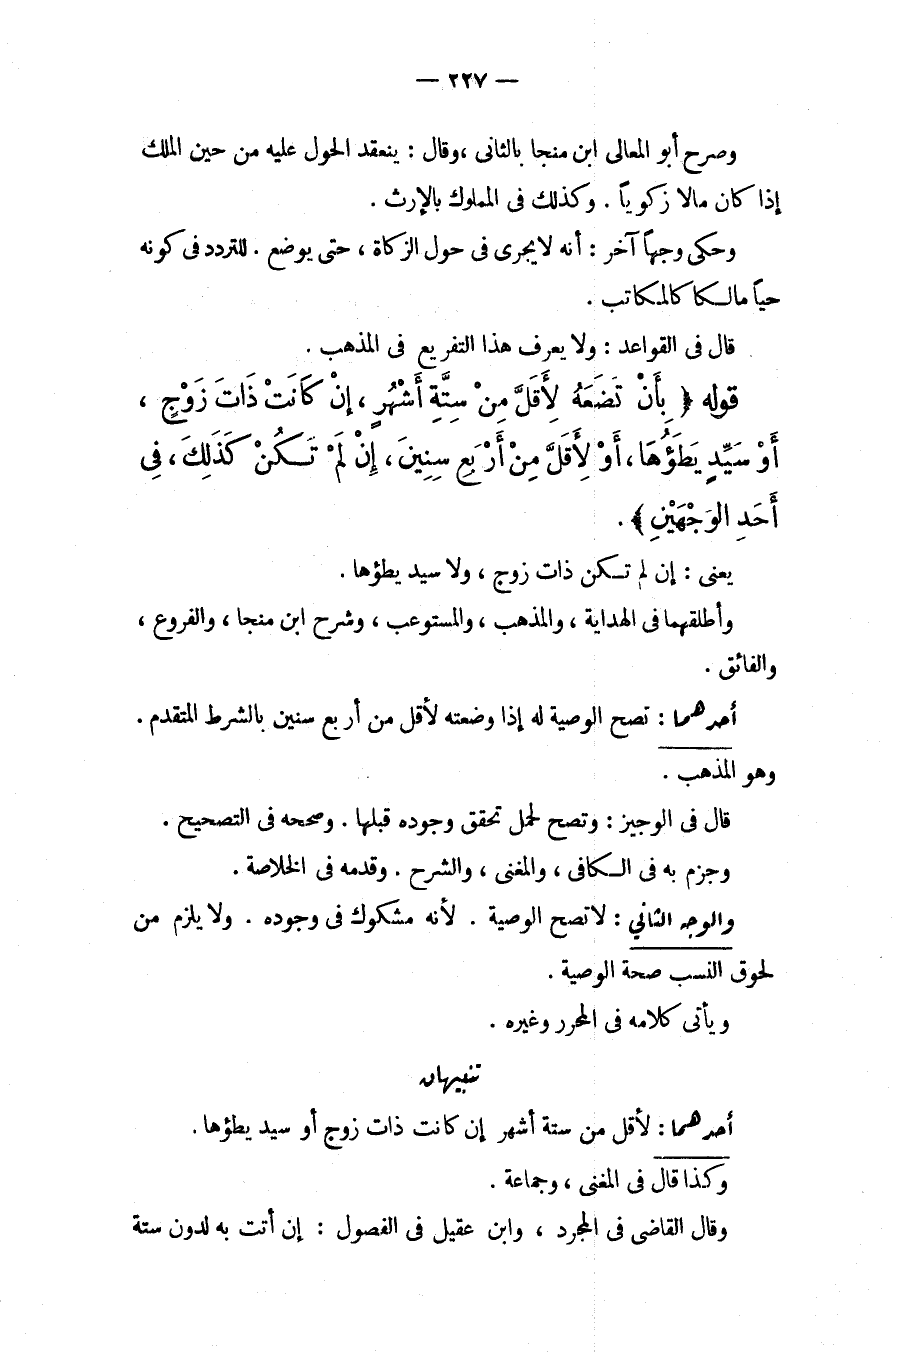 — ٢٢٧ —
وصرح أبو المعالى ابن منجا بالثانى ،وقال : ينعقد الحول عليه من حين الملك
إذا كان مالا زكوياً . وكذلك فى المملوك بالإرث .
وحكى وجهاً آخر : أنه لايجرى فى حول الزكاة ، حتى يوضع . للتردد فى كونه
حياً مالكا كالمكاتب .
قال فى القواعد : ولا يعرف هذا التفريع فى المذهب .
قوله ﴿ بِأَنْ تَضَعَهُ لِأَقَلَّ مِنْ سِتَّةِ أَشْهُرٍ ، إِنْ كَانَتْ ذَاتَ زَوْجٍ ،
أَوْ سَيِّدٍ يَطَؤُهَا ، أَوْ لِأَقَلَّ مِنْ أَرْبَعِ سِنِينَ ، إِنْ لَمْ تَكُنْ كَذَلِكَ ، فِى
أَحَدِ الوَجْهَيْنِ ﴾ .
يعنى : إن لم تكن ذات زوج ، ولا سيد يطؤها .
وأطلقهما فى الهداية ، والمذهب ، والمستوعب ، وشرح ابن منجا ، والفروع ،
والفائق .
أحدهما : تصح الوصية له إذا وضعته لأقل من أربع سنين بالشرط المتقدم .
وهو المذهب .
قال فى الوجيز : وتصح لحمل تحقق وجوده قبلها . وصححه فى التصحيح .
وجزم به فى الكافى ، والمغنى ، والشرح . وقدمه فى الخلاصة .
والوجه الثاني : لاتصح الوصية . لأنه مشكوك فى وجوده . ولا يلزم من
لحوق النسب صحة الوصية .
ويأتى كلامه فى المحرر وغيره .
تنبيهان
أحدهما : لأقل من ستة أشهر إن كانت ذات زوج أو سيد يطؤها .
وكذا قال فى المغنى ، وجماعة .
وقال القاضى فى المجرد ، وابن عقيل فى الفصول : إن أتت به لدون ستة